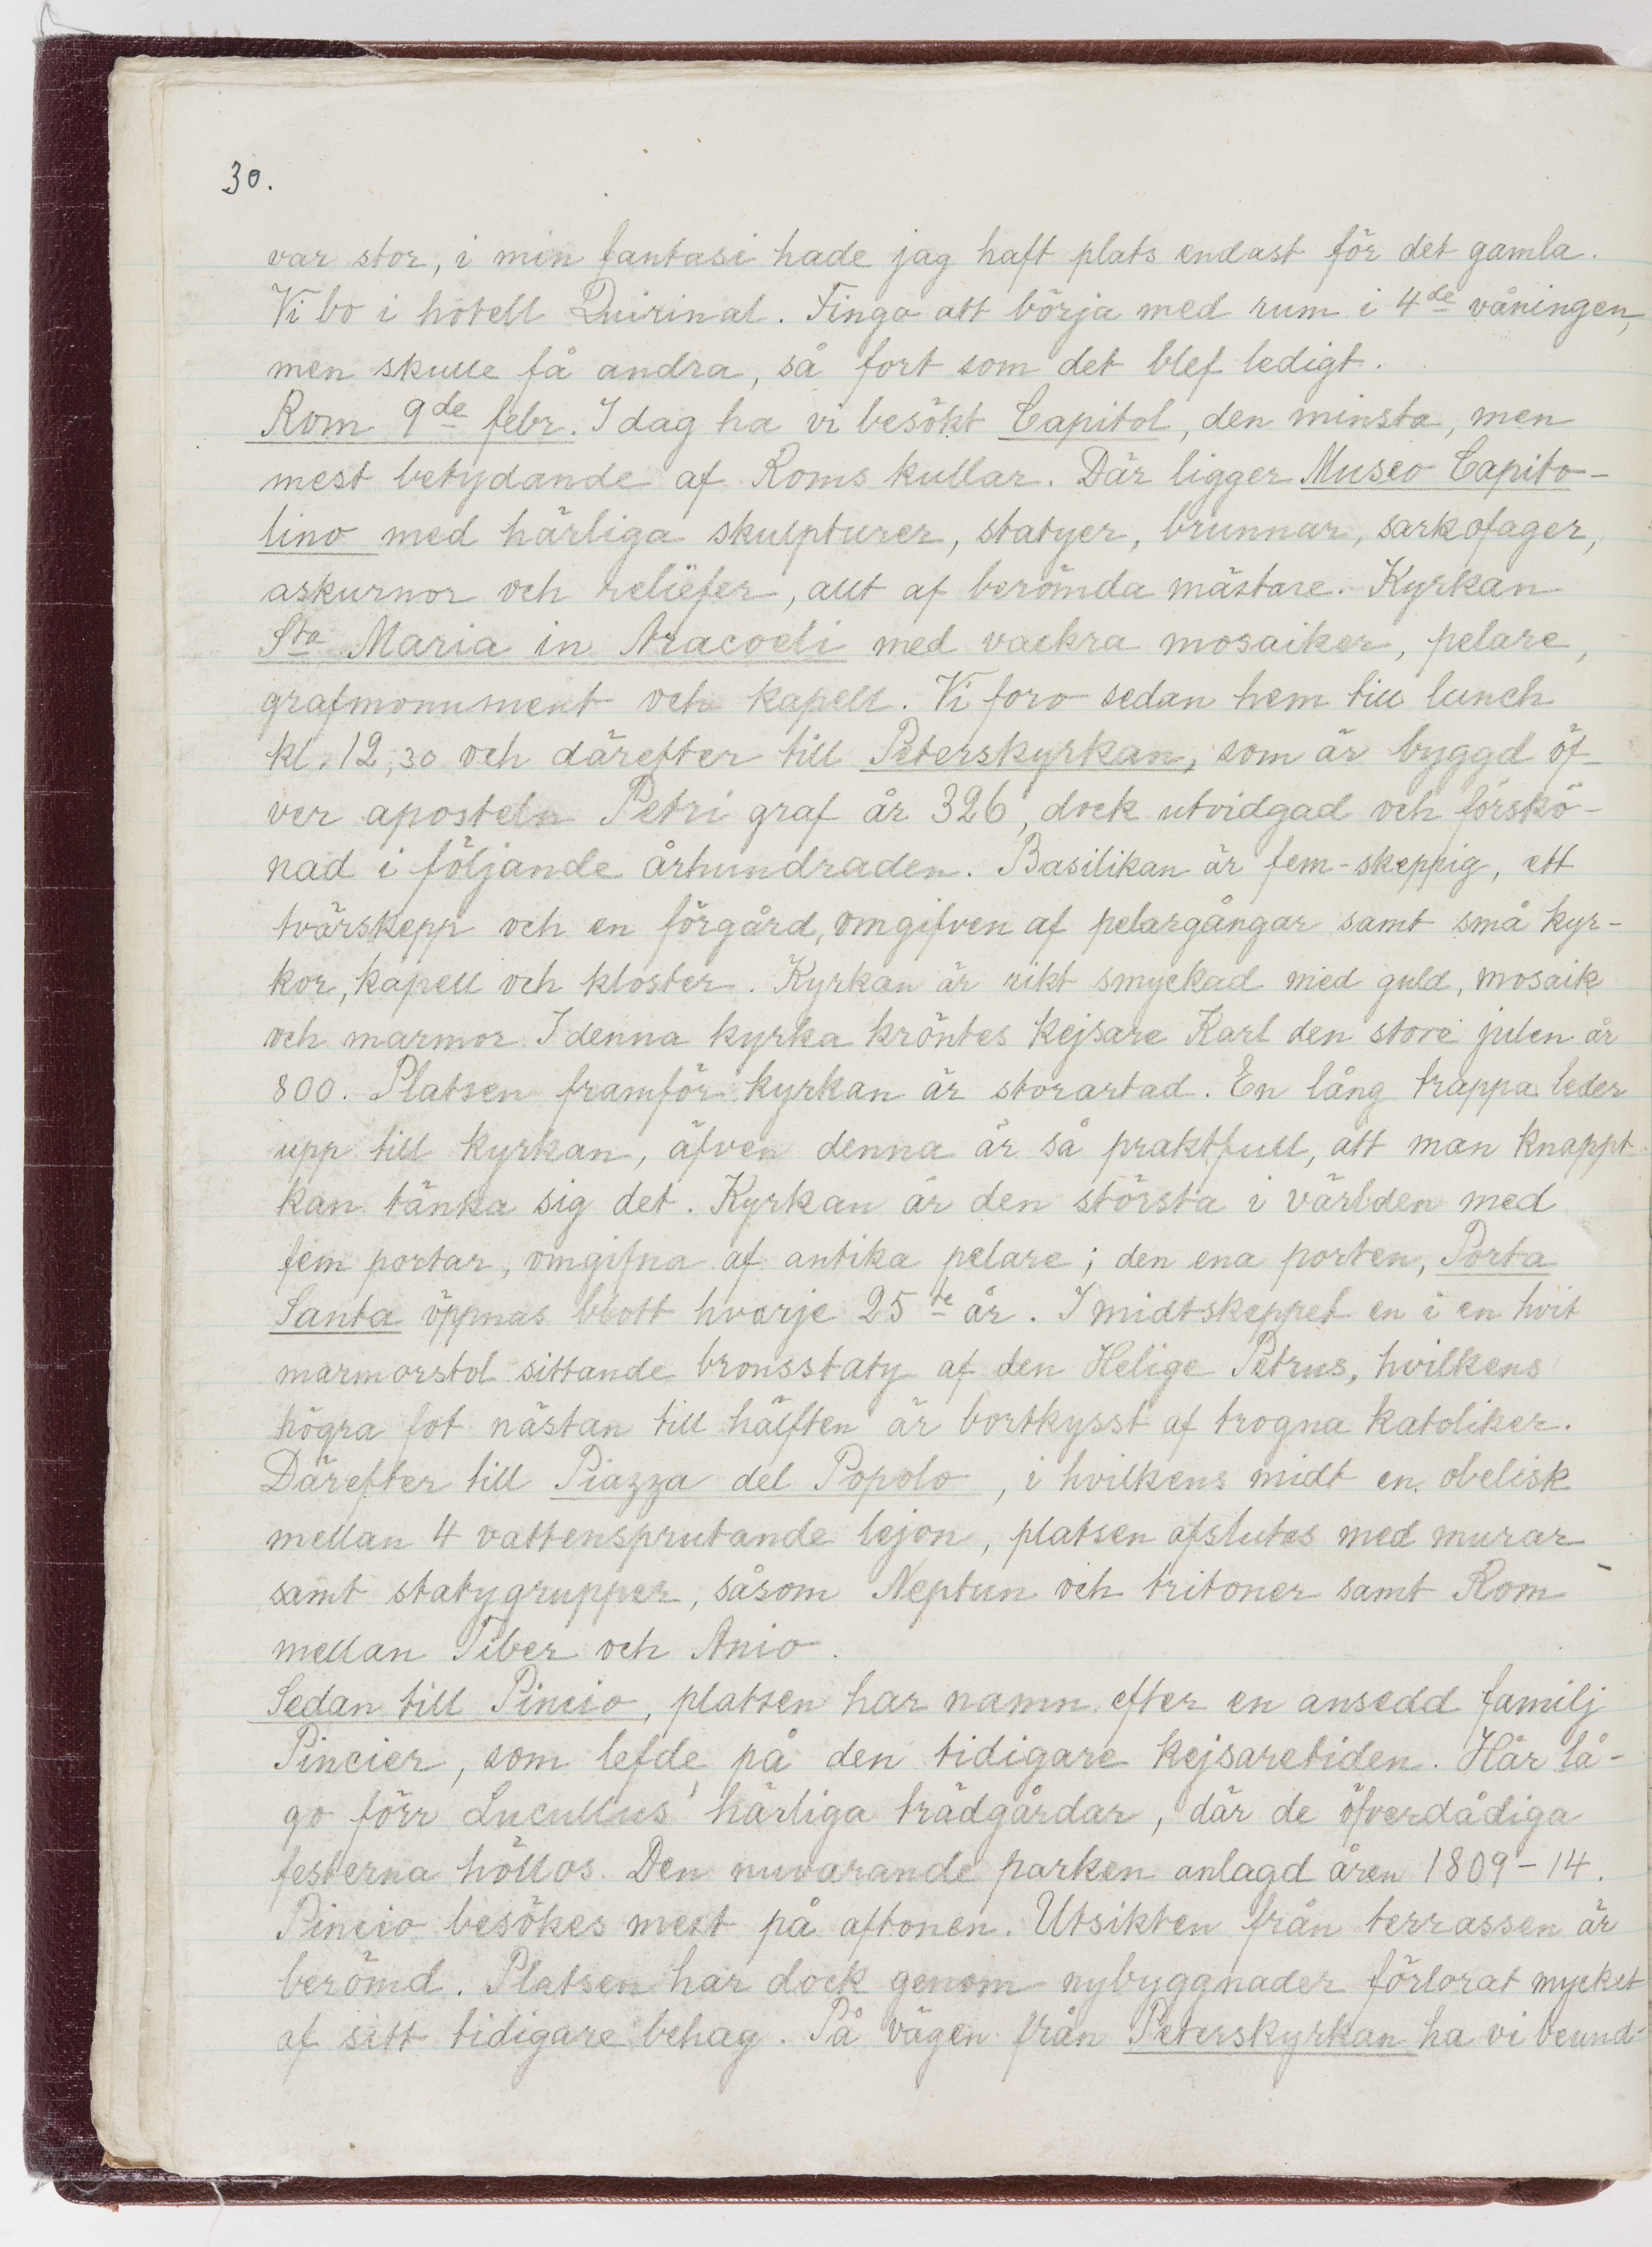 30.
var stor, i min fantasi hade jag haft plats endast för det gamla.
Vi bo i hotell Quirinal. Fingo att börja med rum i 4de våningen,
men skulle få andra, så fort som det blef ledigt.
Rom 9de febr. I dag ha vi besökt Capitol, den minsta, men
mest betydande af Roms kullar. Där ligger Museo Capito-
lino med härliga skulpturer, statyer, brunnar, sarkofager,
askurnor och reliëfer, allt af berömda mästare. Kyrkan
Sta Maria in Aracoeli med vackra mosaiker, pelare,
grafmonument och kapell. Vi foro sedan hem till lunch
kl. 12,30 och därefter till Peterskyrkan, som är byggd öf-
ver aposteln Petri graf år 326, dock utvidgad och förskö-
nad i följande århundraden. Basilikan är fem-skeppig, ett
tvärskepp och en förgård, omgifven af pelargångar samt små kyr-
kor, kapell och kloster. Kyrkan är rikt smyckad med guld, mosaik
och marmor. I denna kyrka kröntes kejsare Karl den store julen år
800. Platsen framför kyrkan är storartad. En lång trappa leder
upp till kyrkan, äfven denna är så praktfull, att man knappt
kan tänka sig det. Kyrkan är den största i världen med
fem portar, omgifna af antika pelare; den ena porten, Porta
Santa öppnas blott hvarje 25te år. I midtskeppet en i en hvit
marmorstol sittande bronsstaty af den Helige Petrus, hvilkens
högra fot nästan till hälften är bortkysst af trogna katoliker.
Därefter till Piazza del Popolo, i hvilkens midt en obelisk
mellan 4 vattensprutande lejon, platsen afslutes med murar
samt statygrupper, såsom Neptun och tritoner samt Rom
mellan Tiber och Anio.
Sedan till Pincio, platsen har namn efter en ansedd familj
Pincier, som lefde på den tidigare kejsaretiden. Här lå-
go förr Lucullus' härliga trädgårdar, där de öfverdådiga
festerna höllos. Den nuvarande parken anlagd åren 1809-14.
Pincio besökes mest på aftonen. Utsikten från terrassen är
berömd. Platsen har dock genom nybyggnader förlorat mycket
af sitt tidigare behag. På vägen från Peterskyrkan ha vi beund-